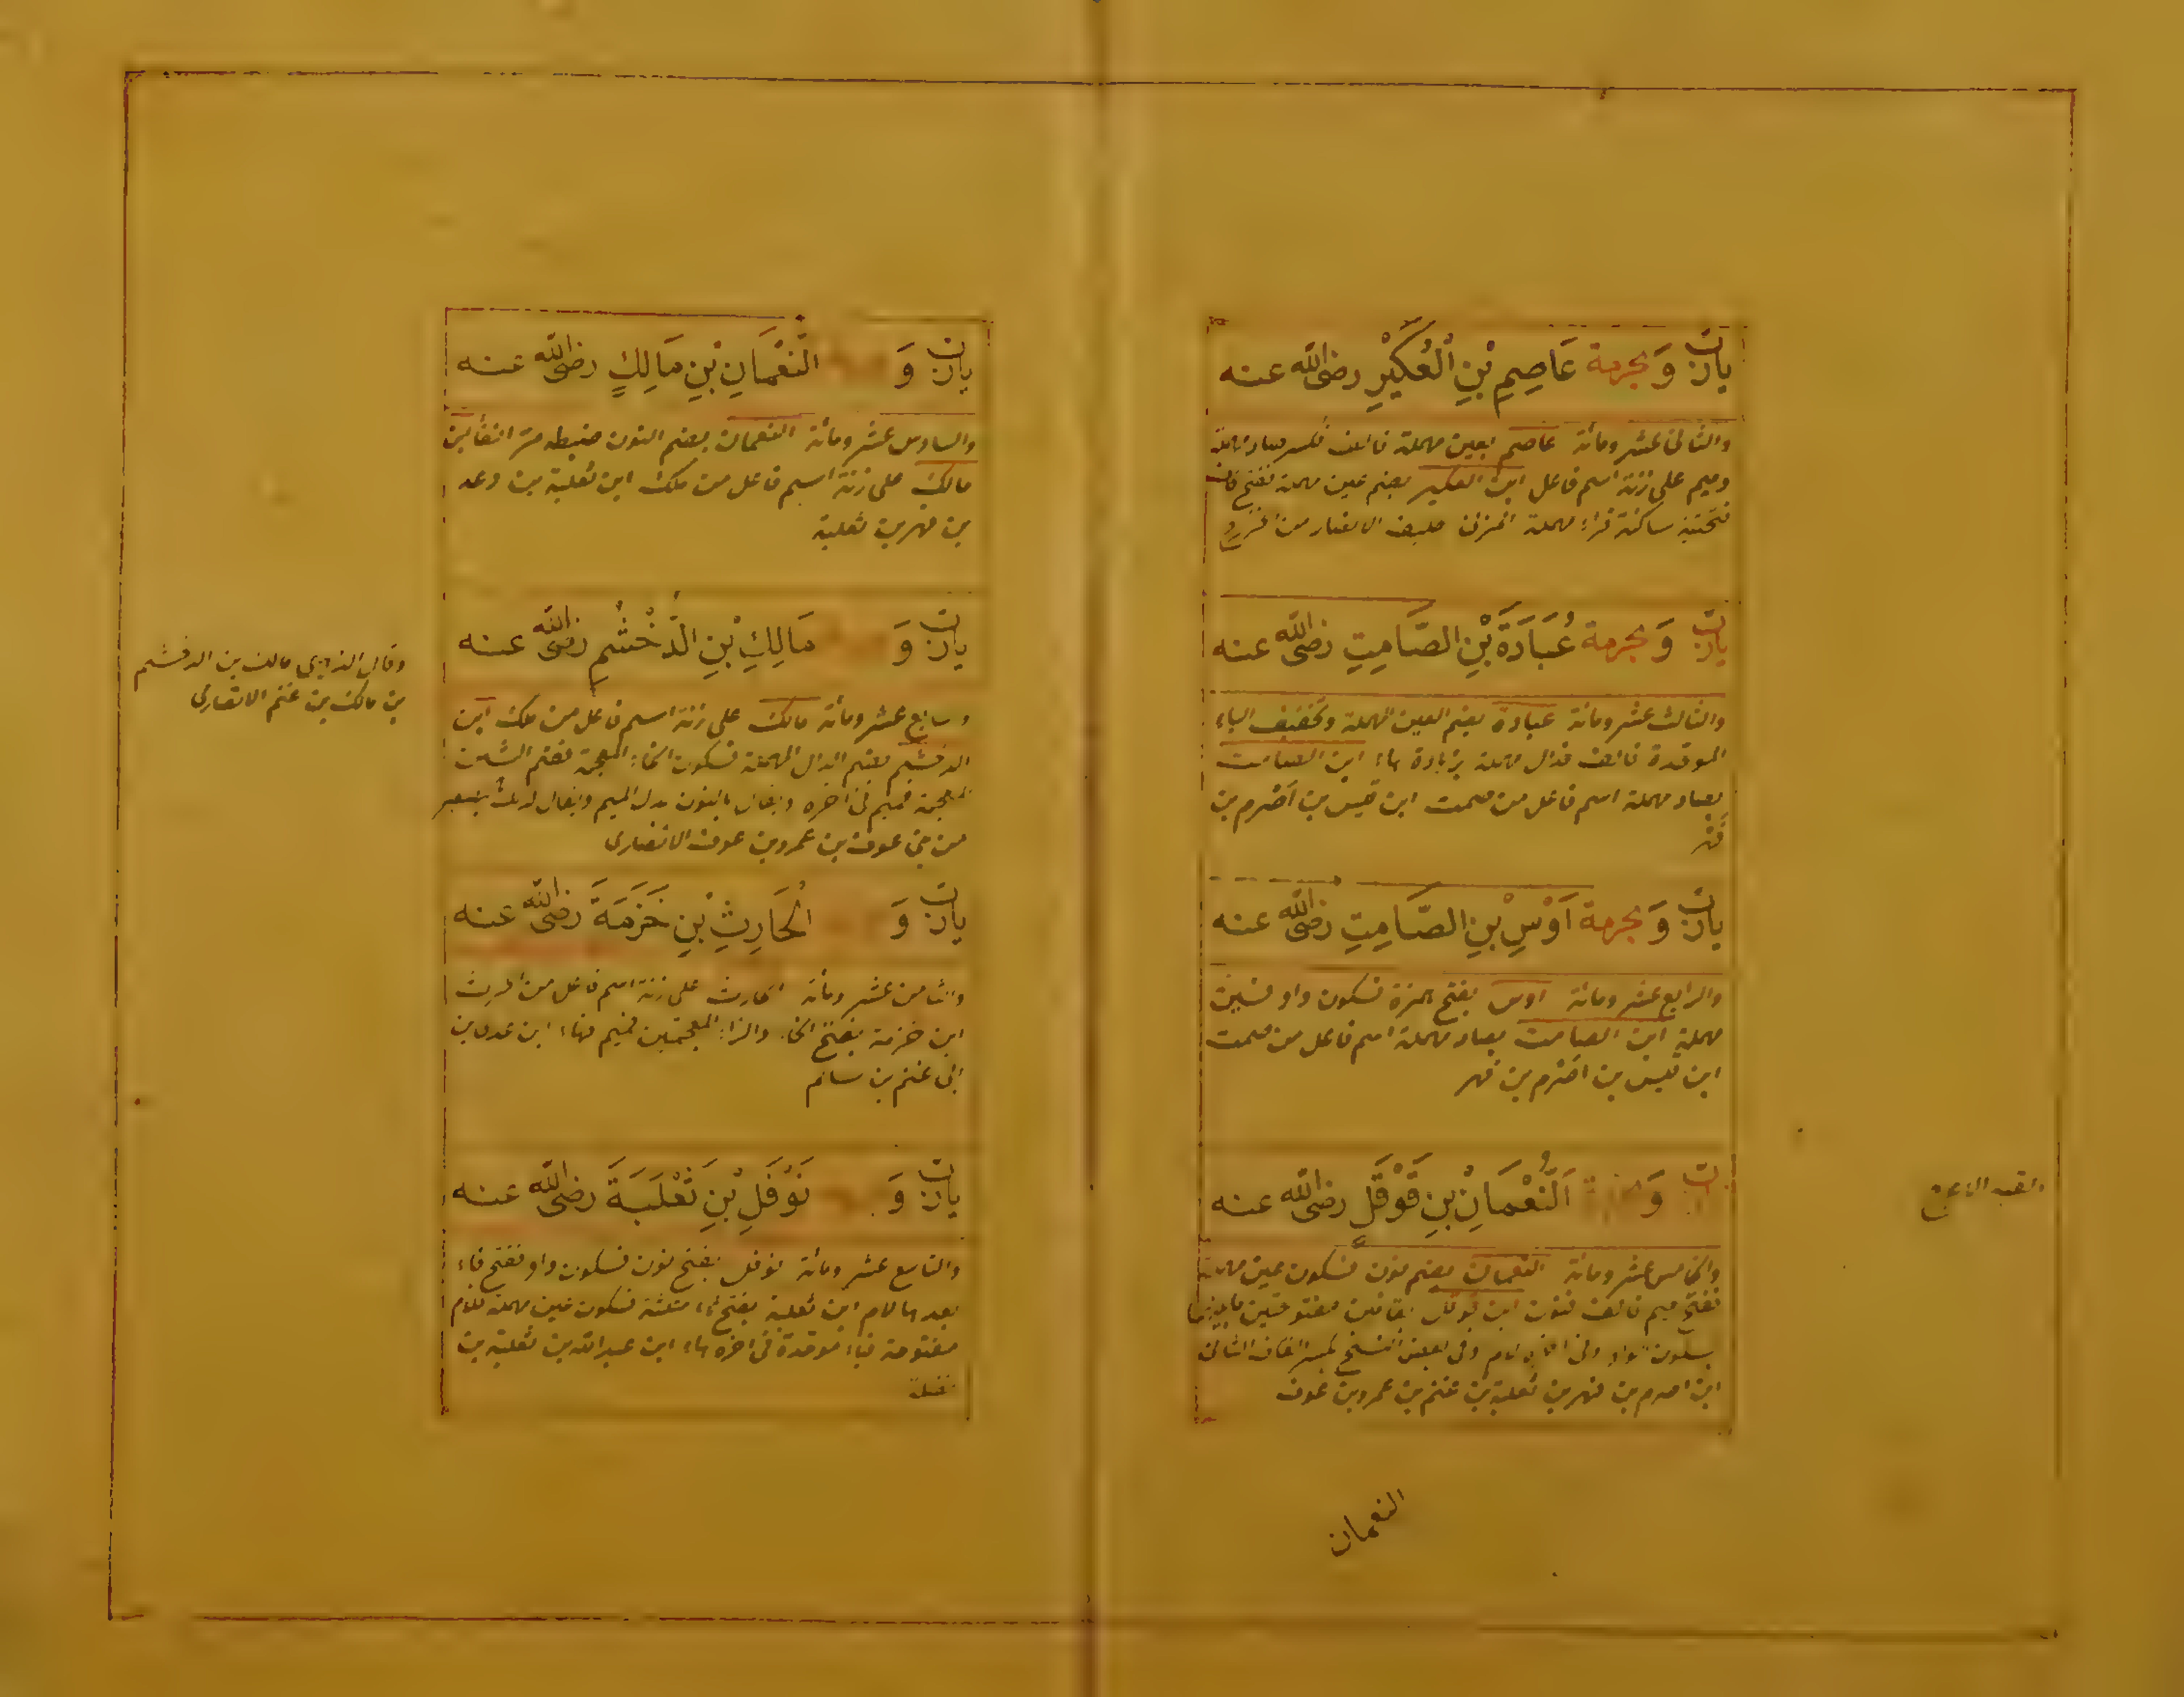 يارب وَبحرمة عَاصِمِ بْنِ الْعُكَيْرِ رضى الله عنه
والثانى عشر ومائة عاصم بعين مهملة فالف فكسر صاد مهملة
وميم على زنة اسم فاعل ابن العكير بضم عين مهملة ففتح كاف
فتحتية ساكنة فراء مهملة المزنى حليف الانصار من الخزرج
يارب وَبحرمة عُبَادَةَ بْنِ الصَّامِتِ رضى الله عنه
والثالث عشر ومائة عبادة بضم العين المهملة وتخفيف الباء
الموحدة فالف فدال مهملة بزيادة هاء ابن الصامت
بصاد مهملة اسم فاعل من صمت ابن قيس بن اَصْرم بن
فهر
يارب وَبحرمة اَوْسِ بْنِ الصَّامِتِ رضى الله عنه
والرابع عشر ومائة اوس بفتح همزة فسكون واو فسين
مهملة ابن الصامت بصاد مهملة اسم فاعل من صمت
ابن قيس بن اصرم بن فهر
وَ اَلنُّعْمَانِ بْنِ قَوْقَلٍ رضى الله عنه
والخامس عشر ومائة النعمان بضم نون فسكون عين مهملة
ففتح ميم فالف فنون ابن قوقل بقافين مفتوحتين بينهما
بسكون واو وفى اخره لام وفى بعض النسخ بكسر القاف الثانى
ابن اصرم بن فهر بن ثعلبة بن غنم بن عمرو بن عوف
النعمان
يارب وَ النُّعْمَانِ بْنِ مَالِكٍ رضى الله عنه
والسادس عشر ومائة النعمان بضم النون ضبطه مر انفا ابن
مالك على زنة اسم فاعل من ملك ابن ثعلبة بن دعد
بن فهر بن ثعلبة
يارب وَ مَالِكِ بْنِ الدُّخْشُمِ رضى الله عنه
وسابع عشر ومائة مالك على زنة اسم فاعل من ملك ابن
الدخشم بضم الدال المهملة فسكون الخاء المعجمة فضم الشين
المعجمة فميم فى اخره ويقال بالنون بدل الميم ويقال
من بنى عوف بن عمرو بن عوف الانصارى
وقال الذهبي مالك بن الدخشم
بن مالك بن غنم الانصارى
يارب وَ الْحَارِثِ بْنِ خَزَمَةَ رضى الله عنه
والثامن عشر ومائة الحارث على زنة اسم فاعل من الحرث
ابن خزمة بفتح الخاء والزاء المعجمتين فميم فهاء ابن عدى بن
ابى غنم بن سالم
يارب وَ نَوْفَلِ بْنِ ثَعْلَبَةَ رضى الله عنه
والتاسع عشر ومائة نوفل بفتح نون فسكون واو ففتح فاء
بعدها لام ابن ثعلبة بفتح ثاء مثلثة فسكون عين مهملة فلام
مفتوحة فباء موحدة فى اخره هاء ابن عبد الله بن ثعلبة بن
نضلة